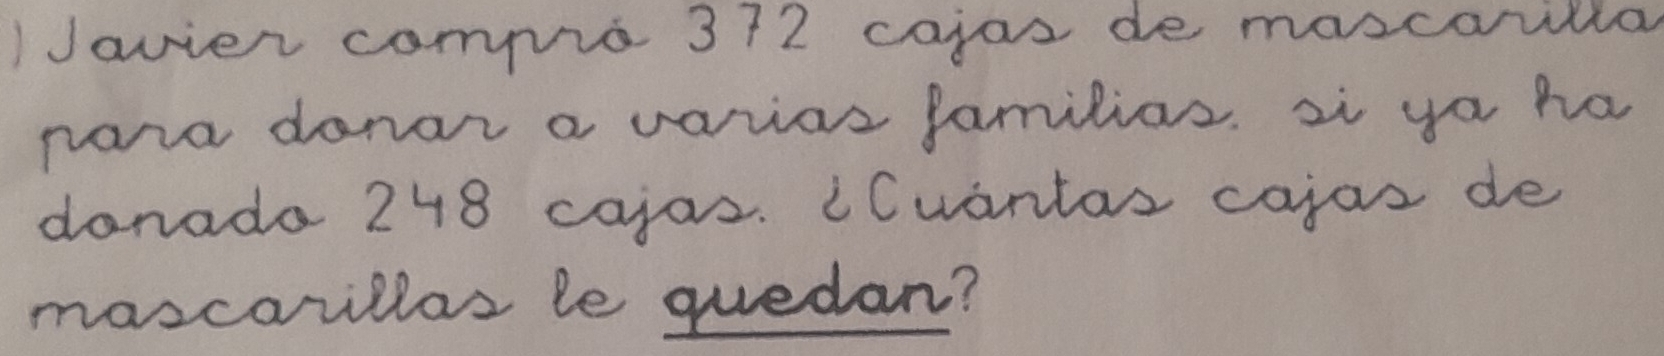 ) Javier compró 372 cajas de mascarilla
para donar a varias familias. si ya ha
donado 248 cajas. ¿Cuántas cajas de
mascarillas le quedan?